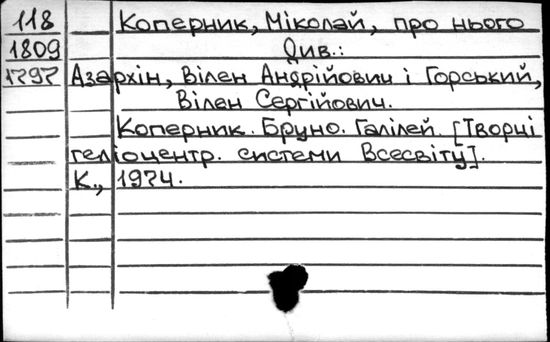 118 Коперник, Міколай, про нього
1809 Див.:
1797 Азархін, Вілен Андрійович і Горський,
Вілен Сергійович.
Коперник. Бруно. Галілей. [Творці
геліоцентр. системи Всесвіту].
К., 1974.